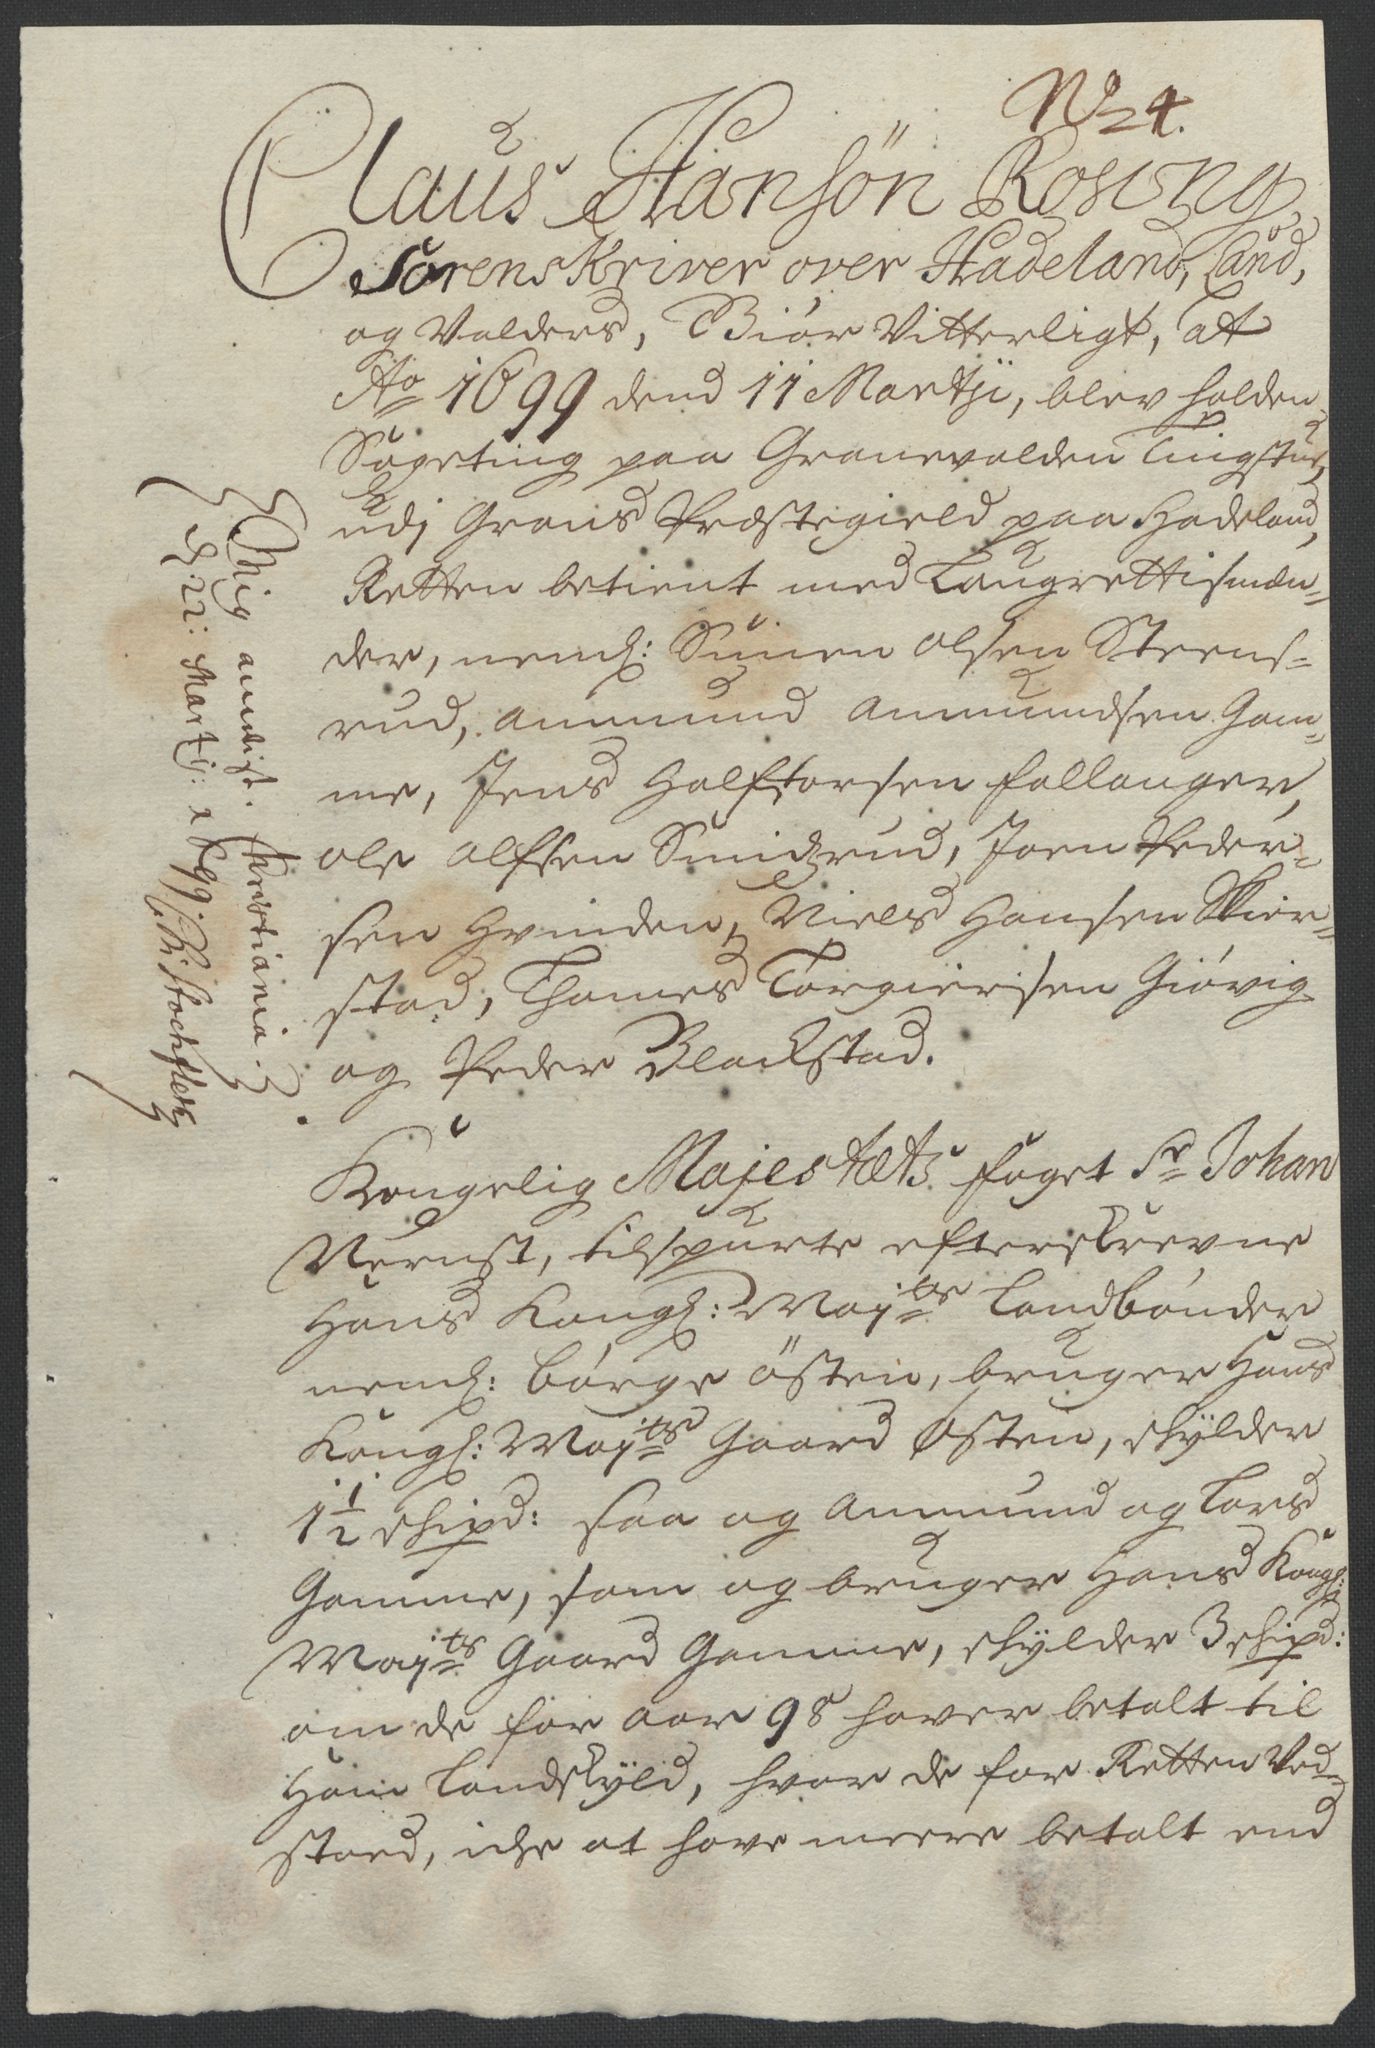 No 4.
Claus Hansøn Rosing
Sorenskriver over Hadeland, Land,
og Valders, Giør Vitterligt, at
Ao 1699 dend 11 Martji, blev holden
Sageting paa Granevolden Tingstue,
udj Grans Præstegield paa Hadeland,
Retten betient med Laugrettismæn-
der, neml: Simen Olsen Steens-
rud, Ammund Ammundsen Gam-
me, Jens Halftorsen Fallanger,
Ole Olfsen Smidzrud, Joen Peder-
sen Hvinden, Niels Hansen Skier-
stad, Thomes Torgiersen Giövig
og Peder Blackstad.
Kongelig Majestætz foget Sr Johan
Mernst, tilspurte efterskrevne
Hans Kongl: Mayts Landbönder
neml: Börge Östen, bruger Hans
Kongl: Mayts Gaard Østen, skylder
1 1/2 skipd: saa og Ammund og Lars
Gamme, som og bruger Hans Kongl:
Mayts Gaard Gamme, skylder 3 skipd:
om de for aar 98 haver betalt til
Ham Landskyld, hvor de for Retten Ved-
stoed, iche at have meere betalt end
Mig anvist. Christiania.
d: 22: Martij: 1699.